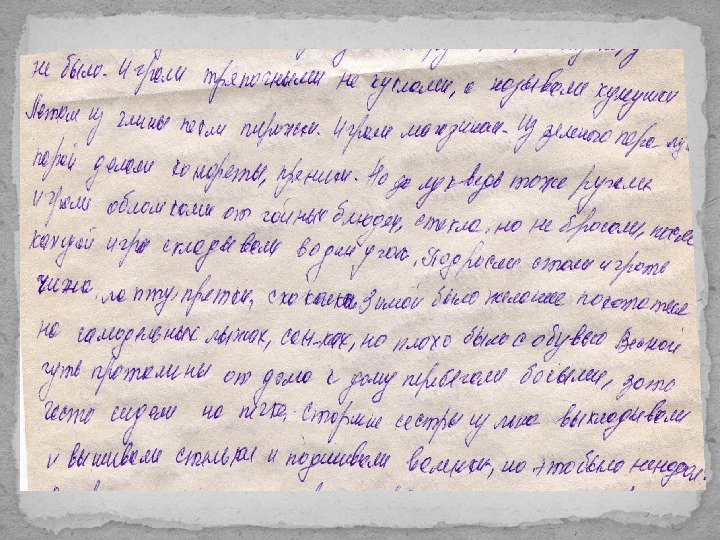 не было. Играли тряпочными не куклами, а называли кукушки
Потом из глины пекли пирожки. Играли магазинам. Из зеленого пера лу-
порой делали конфеты, пряники. Но за лук ведь тоже ругали
играли обломками от чайных блюдец, стекла, но не бросали, после
каждой игры складывали в один угол. Подросли стали играть
чижа, лапту, прятки, скакалки. Зимой было желание покататься
на самодельных лыжах, санках, но плохо было с обувью Весной
чуть проталины от дома к дому перебегали босыми, зато
часто сидели на печке. Старшие сестры из льна выкладывали
и вышивали стельки и подшивали валенки, но это было ненадол-